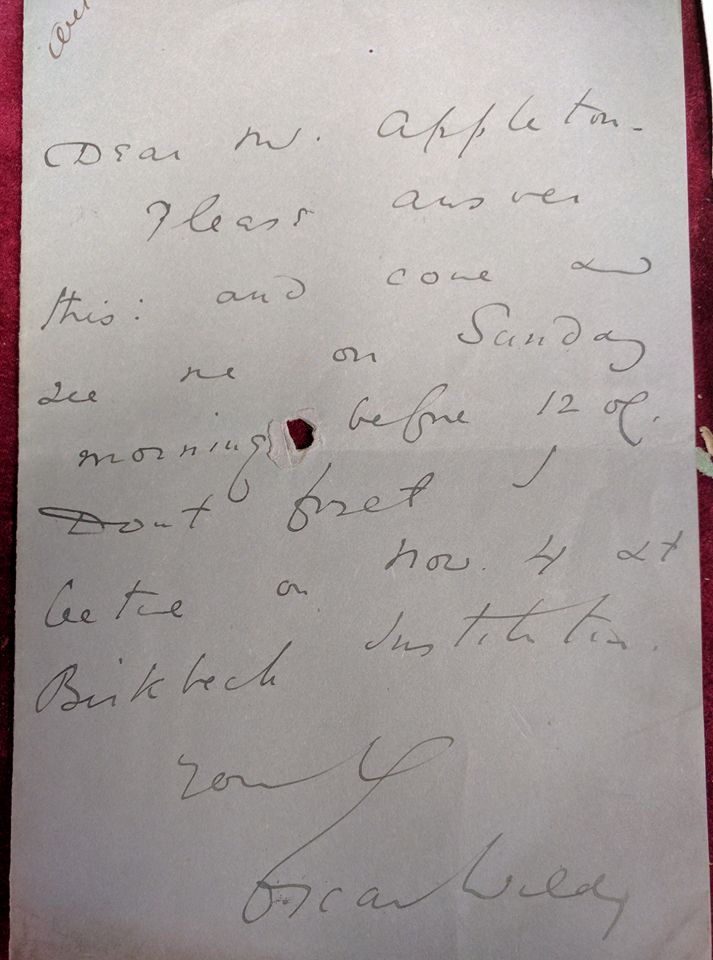 Dear Mr. Appleton -
Please answer
this: and come and
see me on Sunday
morning before 12 oc.
Dont forget I
lecture on Nov. 4 at
Birkbeck Institution.
Yours
Oscar Wilde